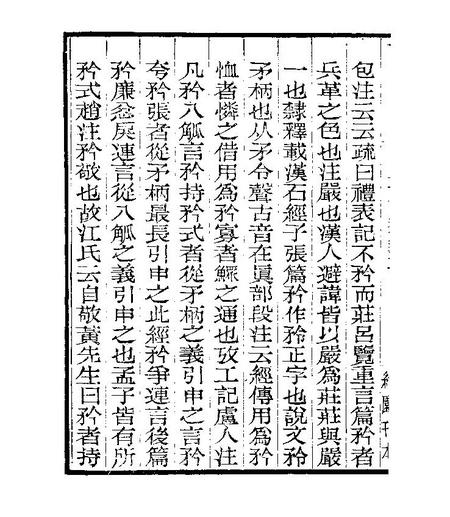 包注云云疏曰禮表記不矜而莊呂覽重言篇矜者
兵革之色也注嚴也漢人避諱皆以嚴為莊莊與嚴
一也隸釋載漢石經子張篇矜作矝正字也說文矝
矛柄也从矛令聲古音在眞部段注云經傳用為矜
恤者憐之借用為矜寡者鰥之通也攷工記廬人注
凡矜八觚言矜持矜式者從矛柄之義引申之言矜
夸矜張者從矛柄最長引申之此經矜爭連言後篇
矜廉忿戾連言從八觚之義引申之也孟子皆有所
矜式趙注矜敬也故江氏云自敬黃先生曰矜者持